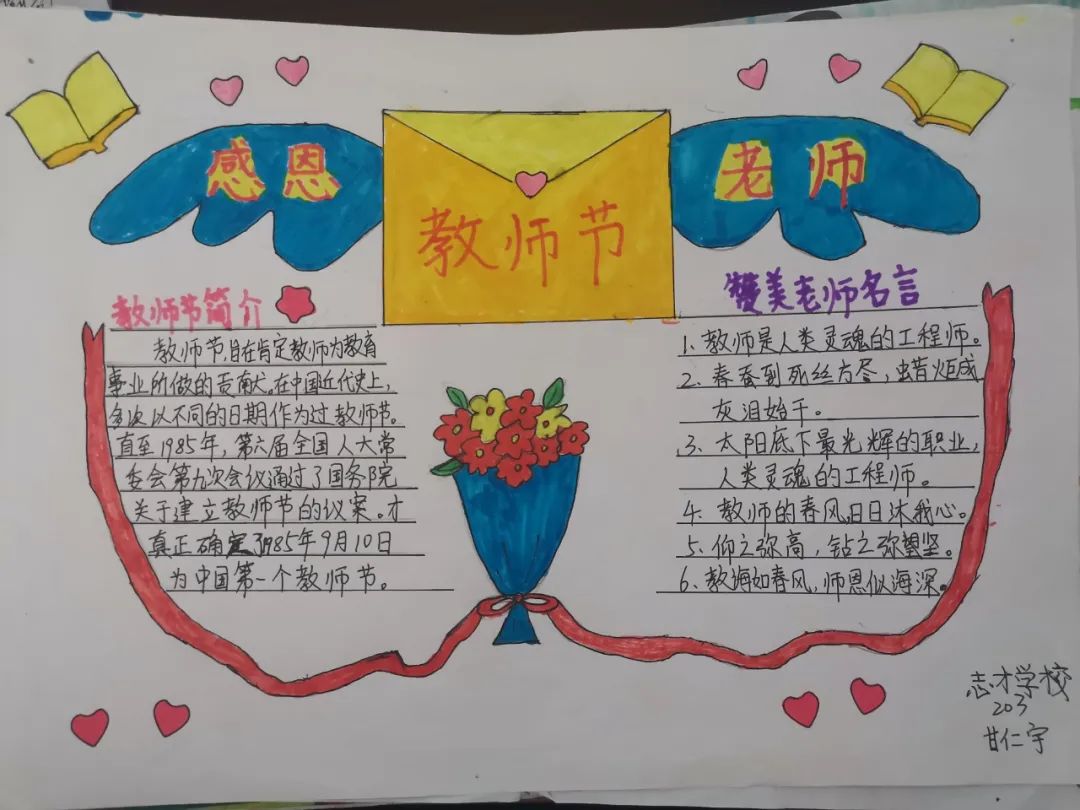 感恩
教师节
老师
教师节简介
教师节,旨在肯定教师为教育
事业所做的贡献。在中国近代史上,
多次以不同的日期作为过教师节。
直至1985年,第六届全国人大常
委会第九次会议通过了国务院
关于建立教师节的议案。才
真正确定了1985年9月10日
为中国第一个教师节。
赞美老师名言
1、教师是人类灵魂的工程师。
2、春蚕到死丝方尽,蜡炬成
灰泪始干。
3、太阳底下最光辉的职业,
人类灵魂的工程师。
4、教师的春风,日日沐我心。
5、仰之弥高,钻之弥坚。
6、教海如春风,师恩似海深。
志才学校
203
甘仁宇